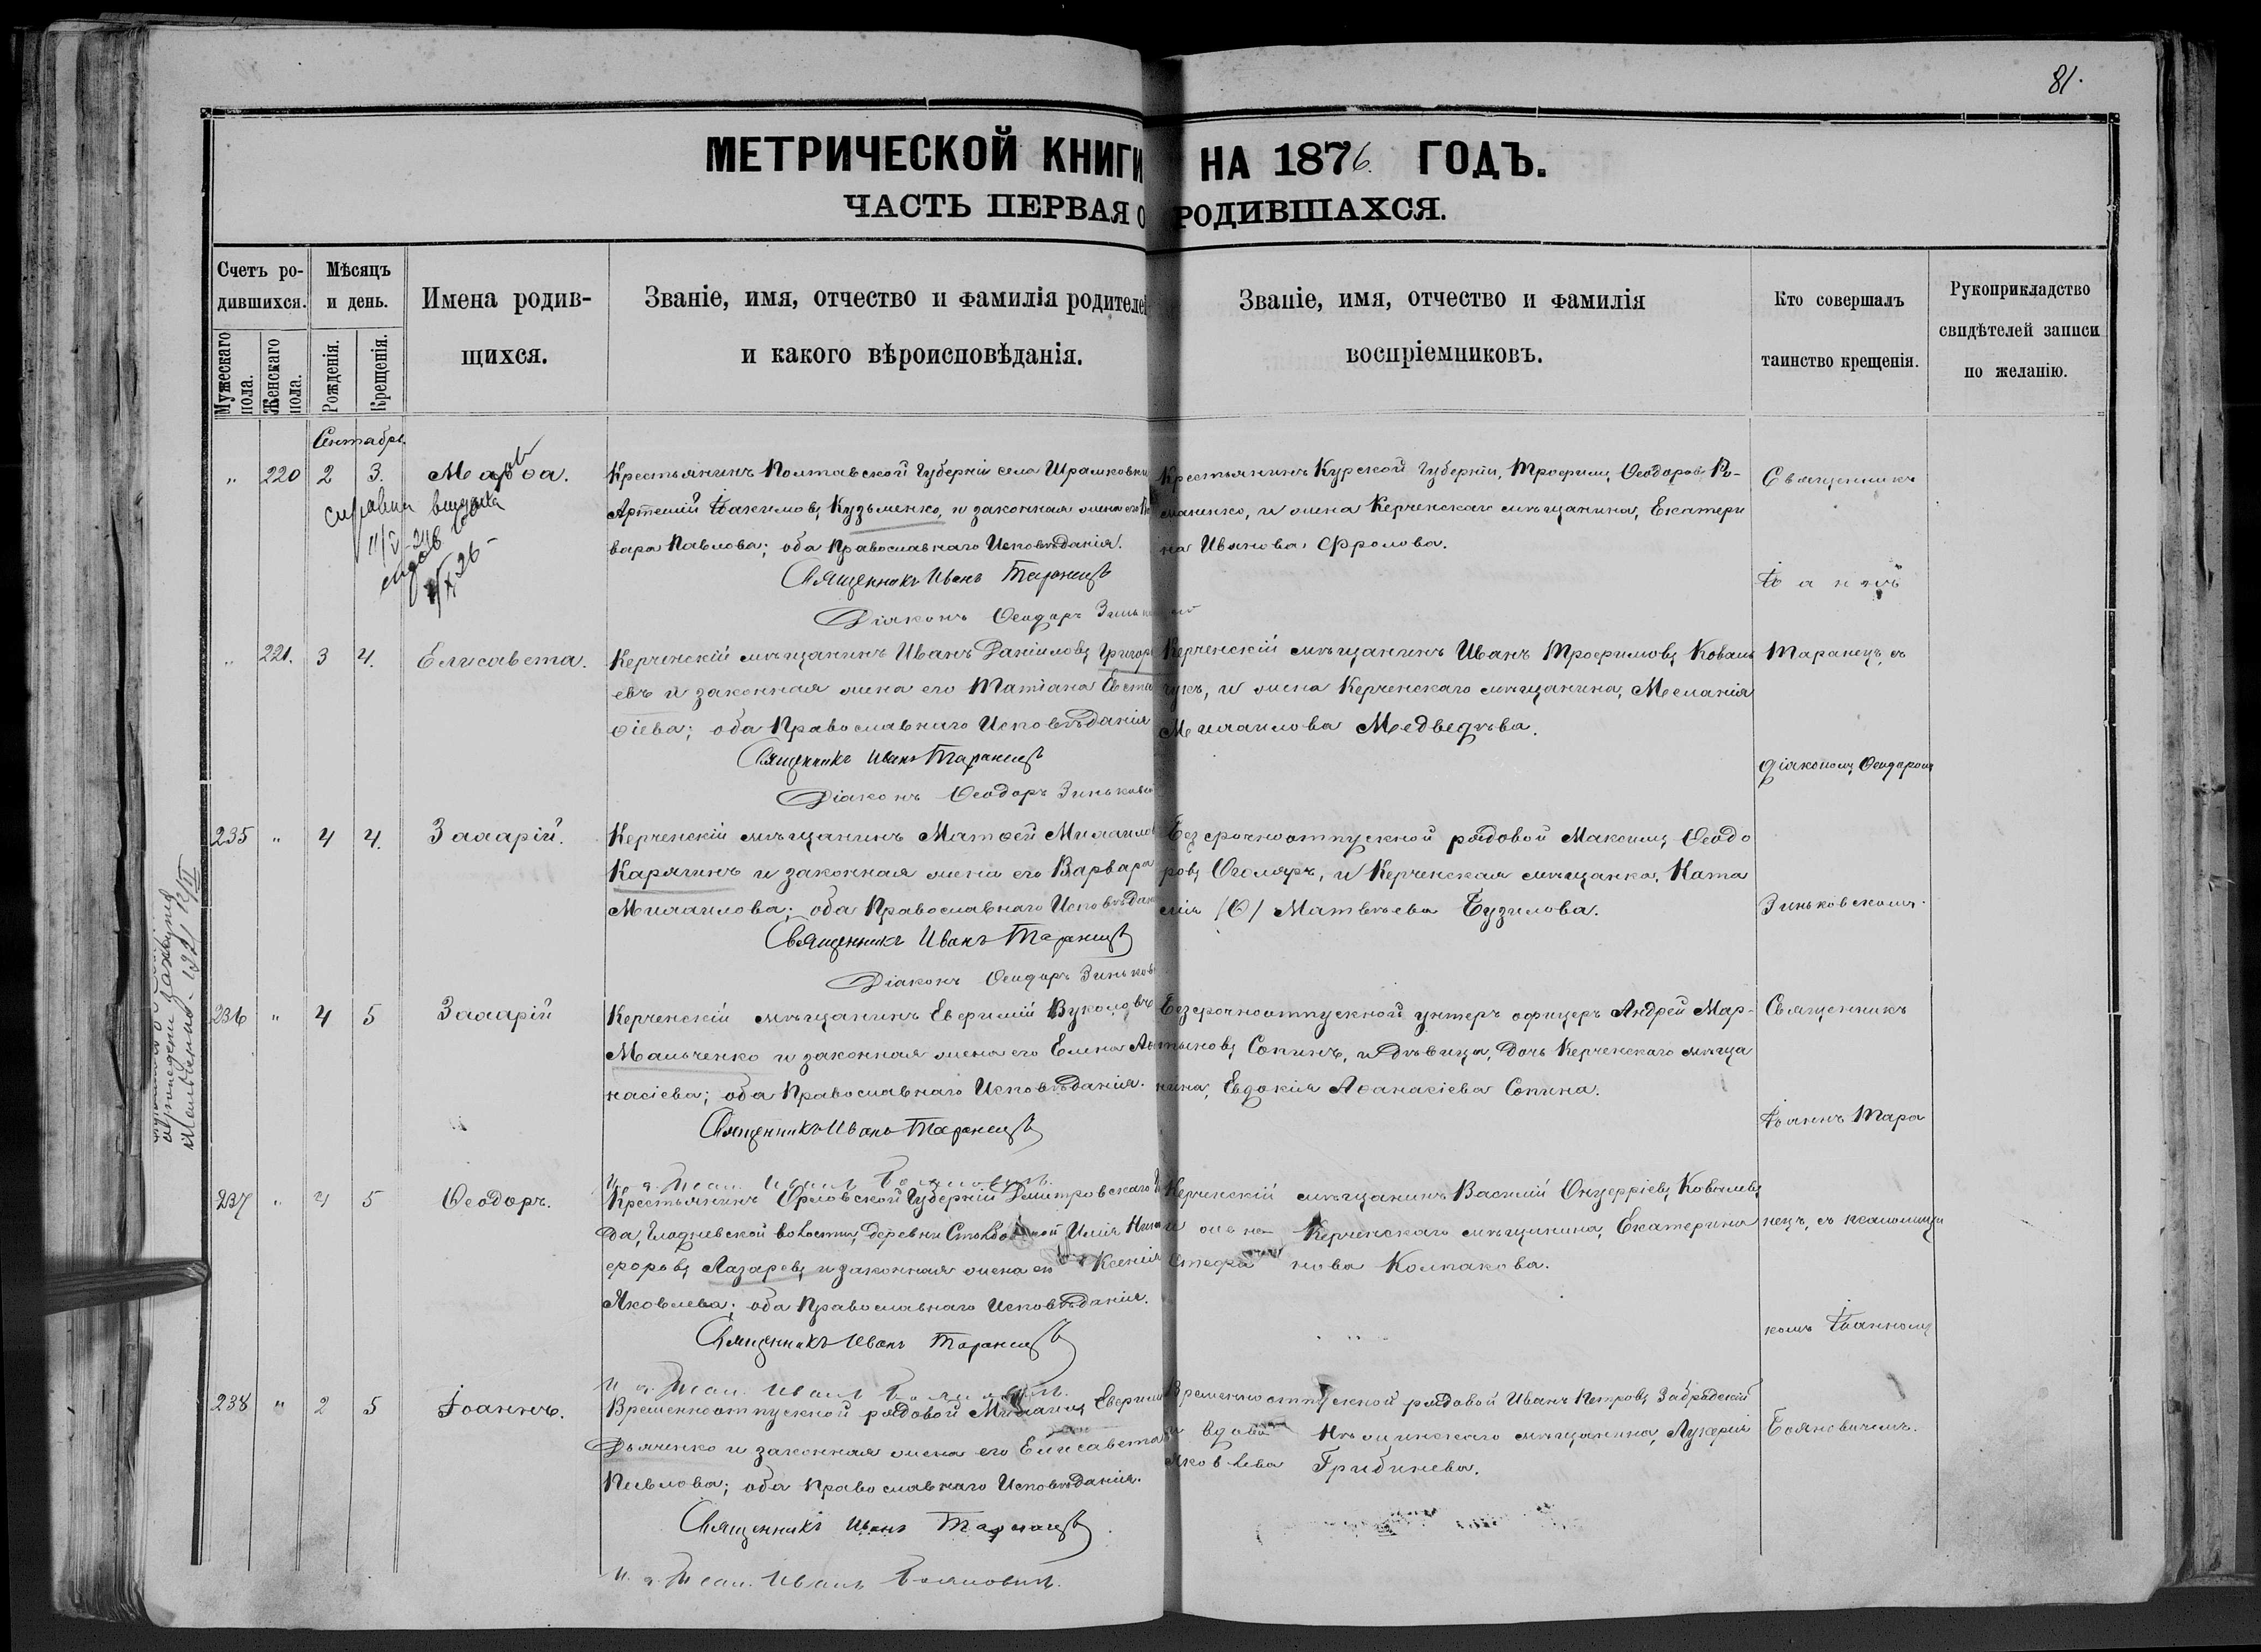 81.
МЕТРИЧЕСКОЙ КНИГИ НА 1876. ГОДЪ.
ЧАСТЬ ПЕРВАЯ О РОДИВШАХСЯ.
Счетъ ро-
дившихся.
Мужескаго пола.
Женскаго пола.
Мѣсяцъ
и день.
Рожденія.
Крещенія.
Имена родив-
щихся.
Званіе, имя, отчество и фамилія родителей
и какого вѣроисповѣданія.
Званіе, имя, отчество и фамилія
воспріемниковъ.
Кто совершалъ
таинство крещенія.
Рукоприкладство
свидѣтелей записи
по желанію.
Сентябрь
" 220 2 3. Марѳа.
Крестьянинъ Полтавской Губерніи села Шрамковки
Артемій Іоакимовъ Кузьменко, и законная жена его
вара Павлова; оба Православнаго Исповѣданія.
Священникъ Иванъ Таранецъ
Діаконъ Ѳеодоръ Зиньковскій
Крестьянинъ Курской Губерніи, Трофимъ Ѳеодоровъ Ро-
маненко, и жена Керченскаго мѣщанина, Екатери
на Иванова Фролова.
Священникъ
Іоаннъ
" 221. 3 4. Елисавета.
Керченскій мѣщанинъ Иванъ Даніиловъ Григорь
евъ и законная жена его Татіана Евста
ѳіева; оба Православнаго Исповѣданія
Священникъ Иванъ Таранецъ
Діаконъ Ѳеодоръ Зиньковск
Керченскій мѣщанинъ Иванъ Трофимовъ Коваль
чукъ, и жена Керченскаго мѣщанина, Меланія
Михаилова Медведѣва.
Таранецъ, съ
діакономъ Ѳеодоромъ
235 " 4 4. Захарій.
Керченскій мѣщанинъ Матѳей Михаилов
Карягинъ и законная жена его Варвара
Михаилова; оба Православнаго Исповѣдан
Священникъ Иванъ Таранецъ
Діаконъ Ѳеодоръ Зиньков
Безсрочноотпускной рядовой Максимъ Ѳеодо
ровъ, и Керченская мѣщанка, Ната
лія (Ѳ) Матвѣева Бузилова.
Зиньковскимъ.
236 " 4 5 Захарій
Керченскій мѣщанинъ Евфимій Вуколовъ
Мальченко и законная жена его Елена Аѳа
насіева; оба Православнаго Исповѣданія.
Священникъ Иванъ Таранецъ
И. д. Псал. Иванъ Бояновичъ.
Безсрочноотпускной унтеръ офицеръ Андрей Мар-
тыновъ Сопинъ, и дѣвица, дочь Керченскаго мѣща
нина, Евдокія Аѳанасіева Сопина.
Священникъ
Іоаннъ Тара
237 " 4 5 Ѳеодоръ.
Крестьянинъ Орловской Губерніи Дмитровскаго У
да, Глодневской волости, деревни Илія Ники
форовъ Лазаревъ и законная жена его Ксенія
Яковлева; оба Православнаго Исповѣданія.
Священникъ Иванъ Таранецъ
И. д. Псал. Иванъ Бояновичъ.
Керченскій мѣщанинъ Василій Онуфріевъ Ковалевъ
и жена Керченскаго мѣщанина, Екатерина
Стефанова Колпакова.
нецъ, съ псаломщи
комъ Іоанномъ
238 " 2 5 Іоаннъ.
Временноотпускной рядовой Михаилъ Евфимі
Дьяченко и законная жена его Елисавета
Павлова; оба Православнаго Исповѣданія.
Священникъ Иванъ Таранецъ
И. д. Псал. Иванъ Бояновичъ.
Временноотпускной рядовой Иванъ Петровъ Забродскій
и вдова Нѣжинскаго мѣщанина, Лукерія
Яковлева Грибинева.
Бояновичемъ.